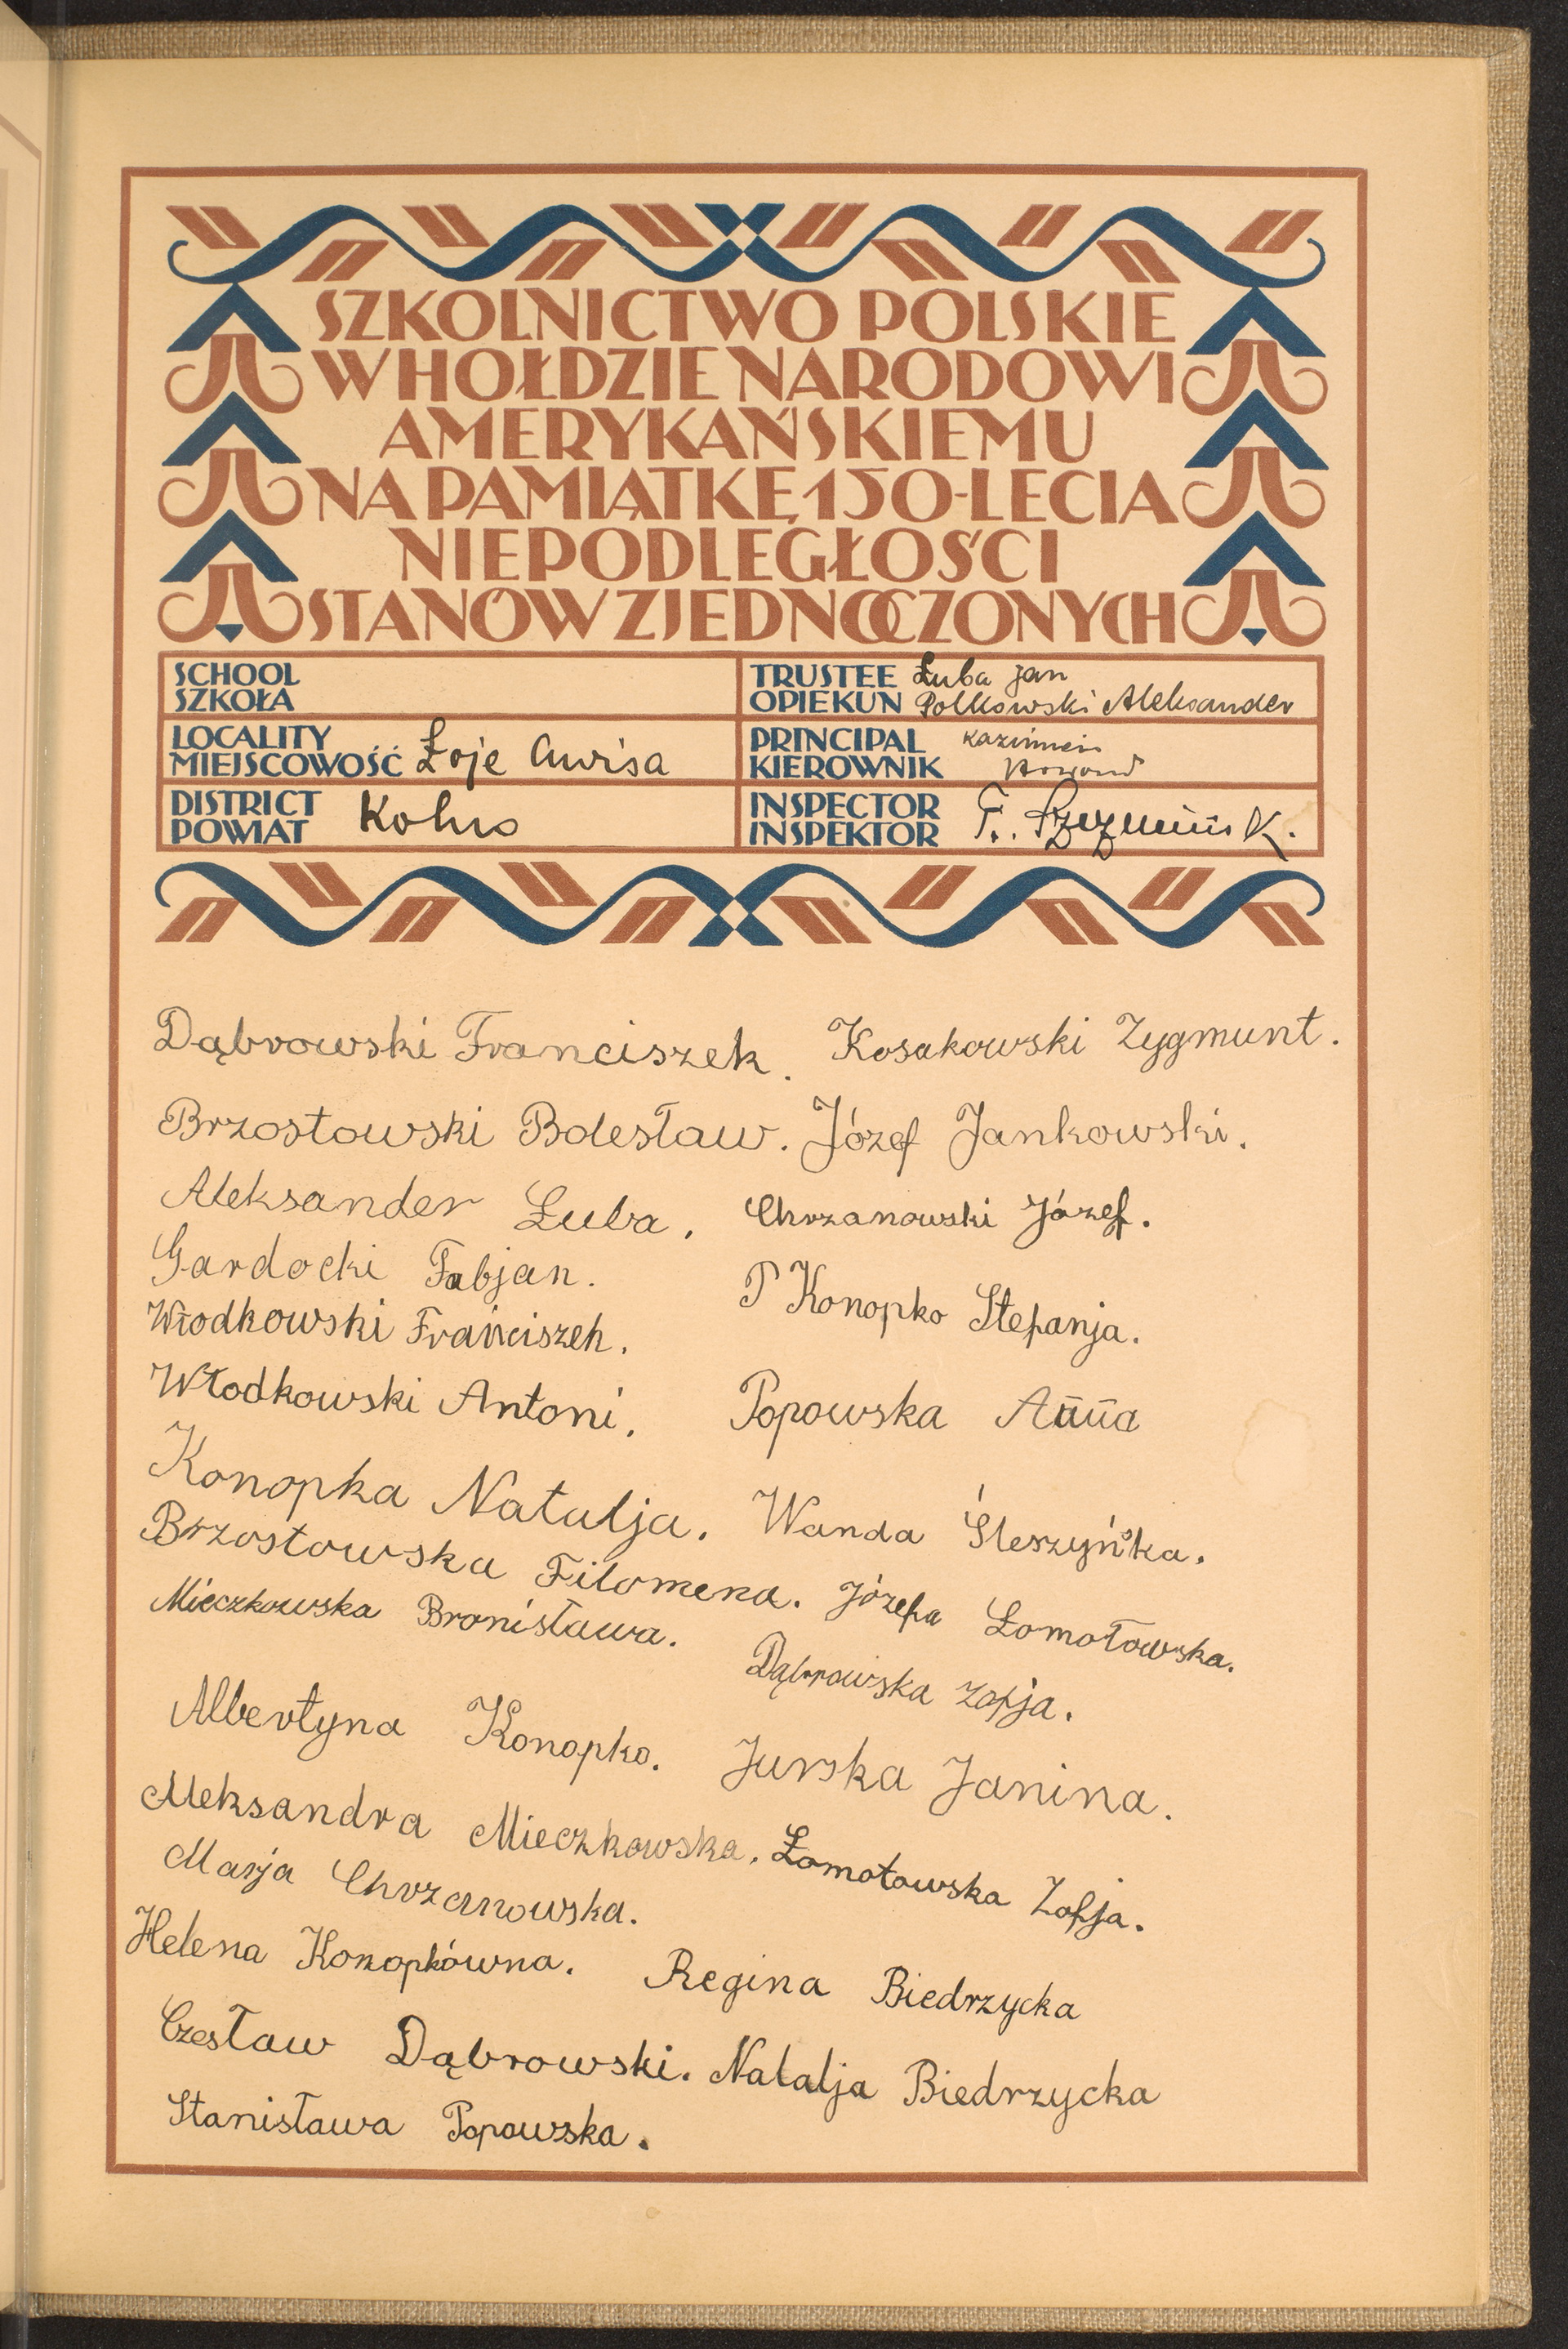 SZKOLNICTWO POLSKIE
W HOŁDZIE NARODOWI
AMERYKAŃSKIEMU
NA PAMIĄTKĘ 150-LECIA
NIEPODLEGŁOŚCI
STANÓW ZJEDNOCZONYCH
SCHOOL
SZKOŁA
TRUSTEE Łuba Jan
OPIEKUN Polkowski Aleksander
LOCALITY
MIEJSCOWOŚĆ Łoje Awisa
PRINCIPAL Kazimierz
KIEROWNIK
DISTRICT
POWIAT Kolno
INSPECTOR
INSPEKTOR
Dąbrowski Franciszek. Kosakowski Zygmunt.
Brzostowski Bolesław. Józef Jankowski.
Aleksander Łuba. Chrzanowski Józef.
Gardocki Fabjan.
P Konopko Stefanja.
Włodkowski Franciszek.
Włodkowski Antoni. Popowska Anna
Konopka Natalja. Wanda Śleszyńska.
Brzostowska Filomena. Józefa Łomotowska.
Mieczkowska Bronisława.
Dąbrowska Zofja.
Albertyna Konopko. Jurska Janina.
Aleksandra Mieczkowska. Łomotowska Zofja.
Marja Chrzanowska.
Helena Konopkówna. Regina Biedrzycka
Czesław Dąbrowski. Natalja Biedrzycka
Stanisława Popowska.